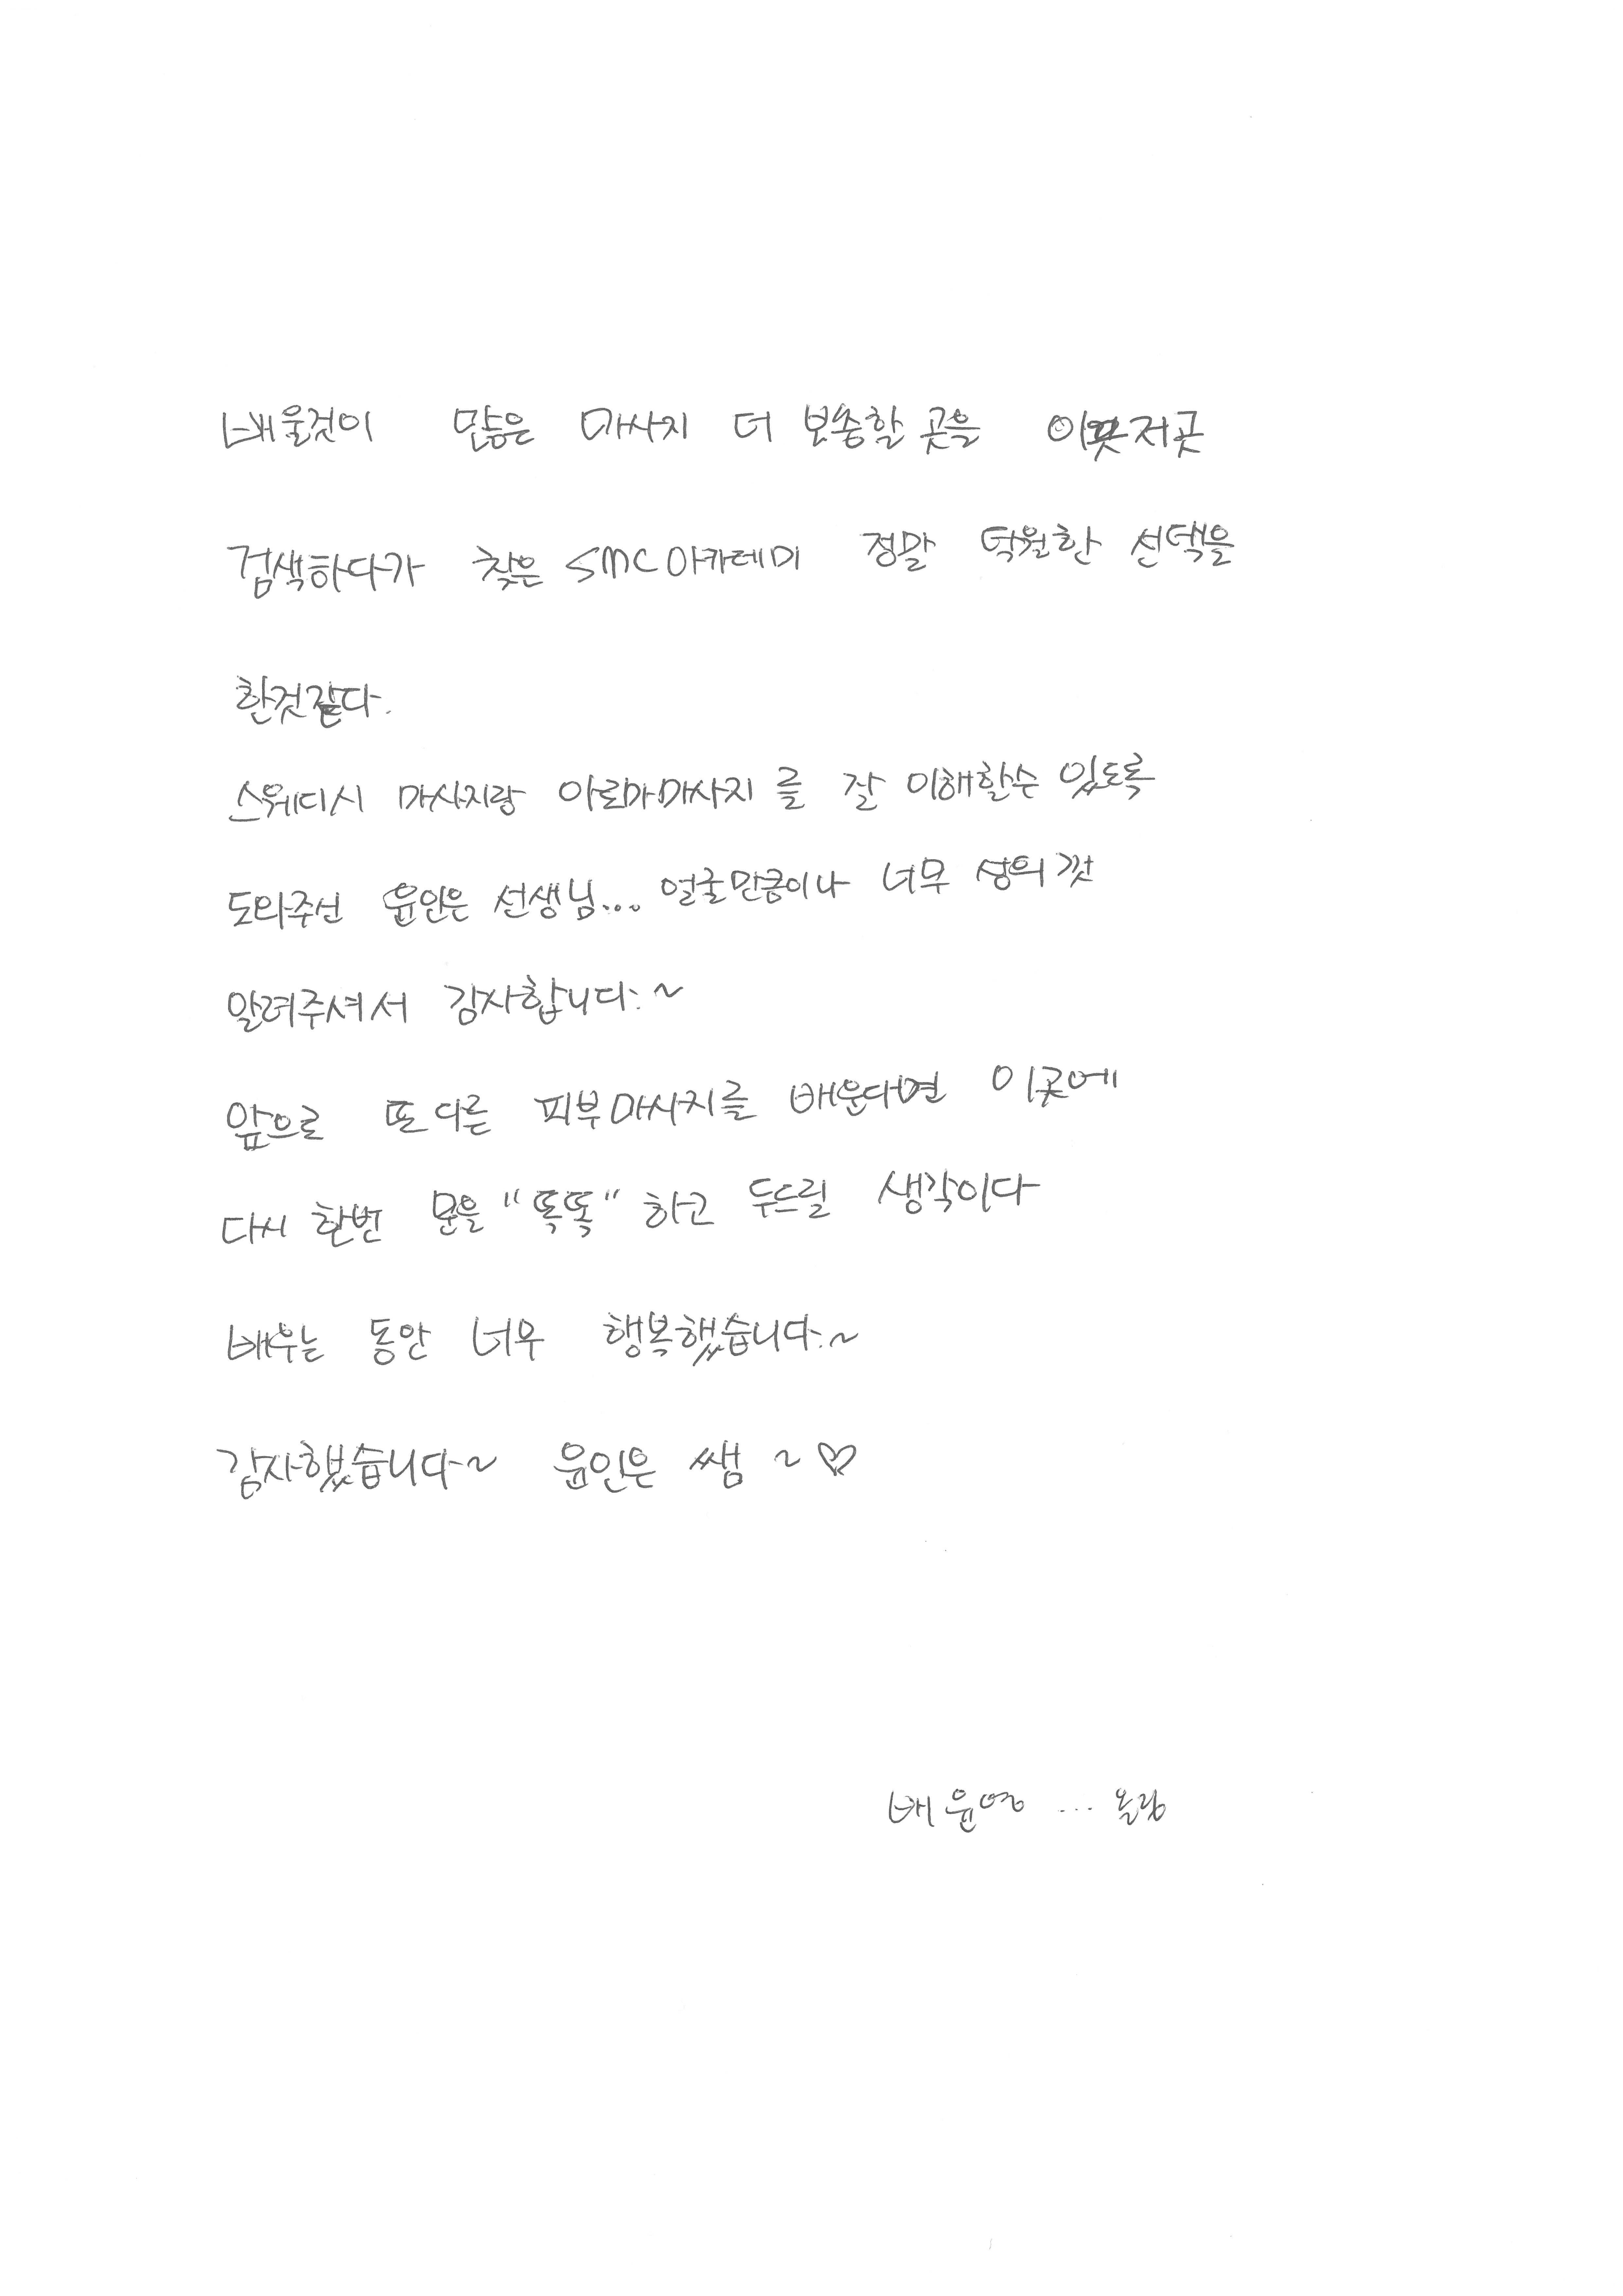 배울것이 많은 마사지 더 보충할 곳을 이곳저곳
검색하다가 찾은 SMC아카데미 정말 탁월한 선택을
한것같다.
스웨디시 마사지랑 아로마마사지를 잘 이해할수 있도록
도와주신 윤인은 선생님... 얼굴만큼이나 너무 성의껏
알려주셔서 감사합니다.~
앞으로 또다른 피부마사지를 배운다면 이곳에
다시 한번 문을 "똑똑" 하고 두드릴 생각이다
배우는 동안 너무 행복했습니다.~
감사했습니다~ 윤인은 쌤 ~♡
배윤영 ... 올림